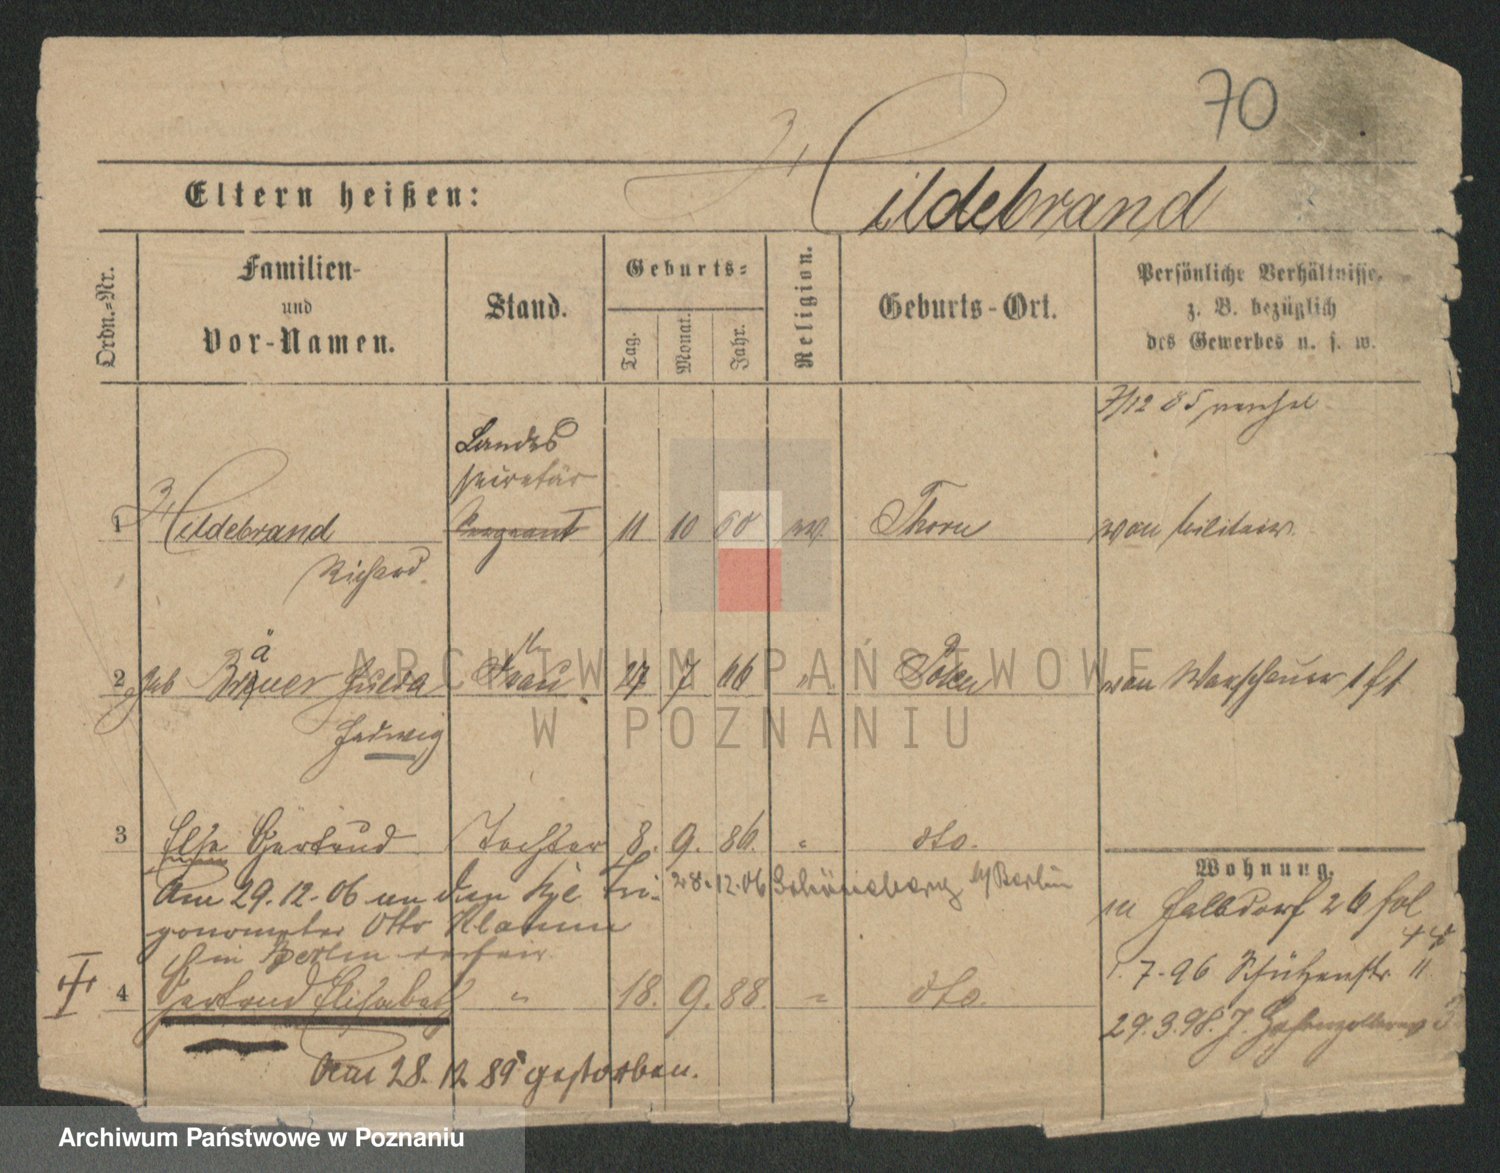 70
Eltern heißen: Hildebrand
Ordn.-Nr.
Familien-
und
Vor-Namen.
Stand.
Geburts-
Tag.
Monat.
Jahr.
Religion.
Geburts-Ort.
Persönliche Verhältnisse,
z. B. bezüglich
des Gewerbes u. s. w.
7/12 85
Landes
secretär
1 Hildebrand Sergeant 11 10 60 ev. Thorn von Militair.
Richard.
2 geb Bräuer Hulda Frau 27 7 66 " Posen von Warschauer
Hedwig
3 Else Gertrud Tochter 8. 9. 86. " dto.
Wohnung.
Am 29.12.06 an den Kgl Tri- 28.12.06 Schöneberg b/Berlin
gonometer Otto Klamm
in Berlin verheir.
4 Gertrud Elisabeth " 18. 9. 88. " dto.
Am 28. 12 89 gestorben.
in Halbdorf 26
1. 7. 96 Schützenstr 11
29.3.98. Hohenzollern
ARCHIWUM PAŃSTWOWE
W POZNANIU
Archiwum Państwowe w Poznaniu